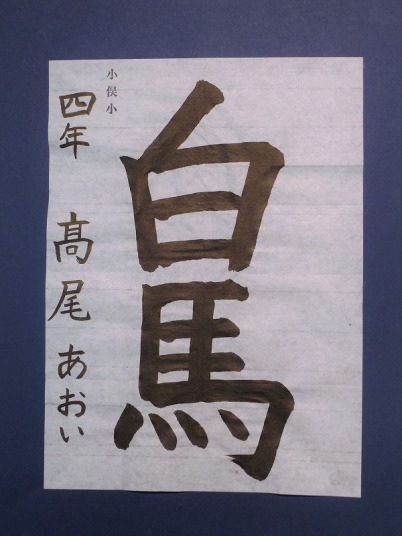 白馬
小俣小
四年 髙尾 あおい